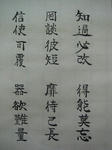 知過必改 得能莫忘
罔談彼短 靡恃己長
信使可覆 器欲難量